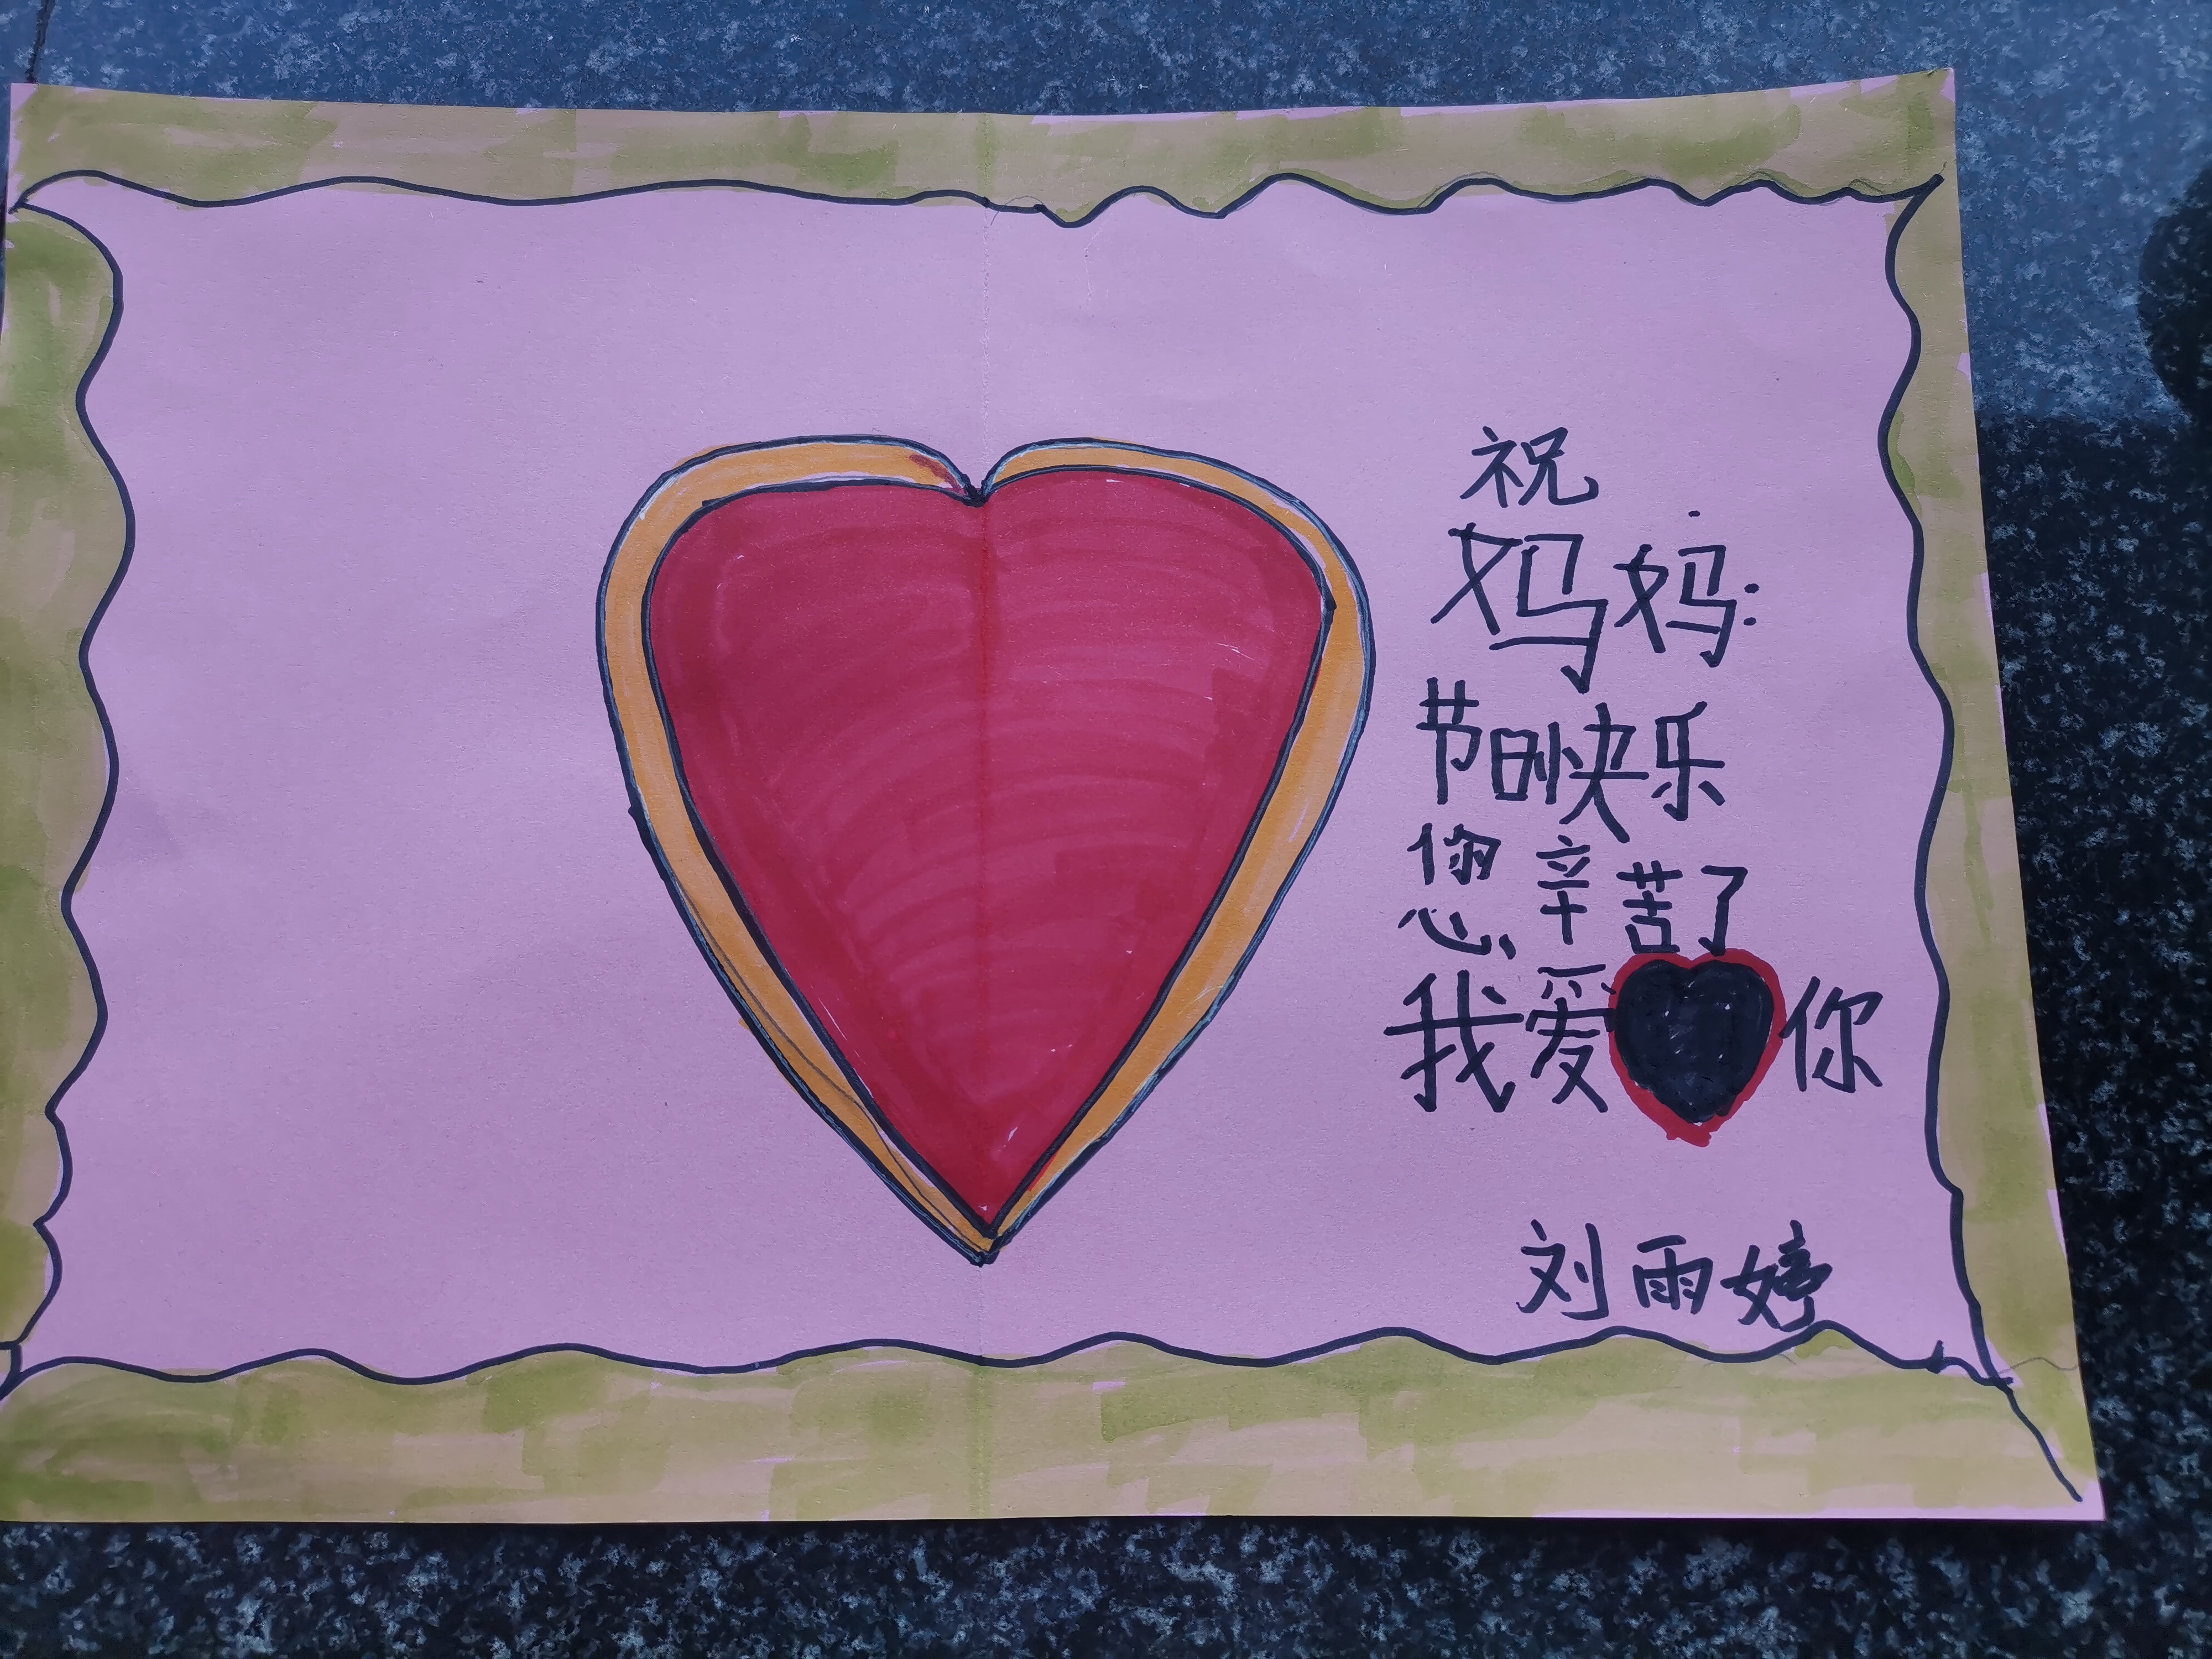 祝
妈妈:
节日快乐
您辛苦了
我爱你
刘雨婷